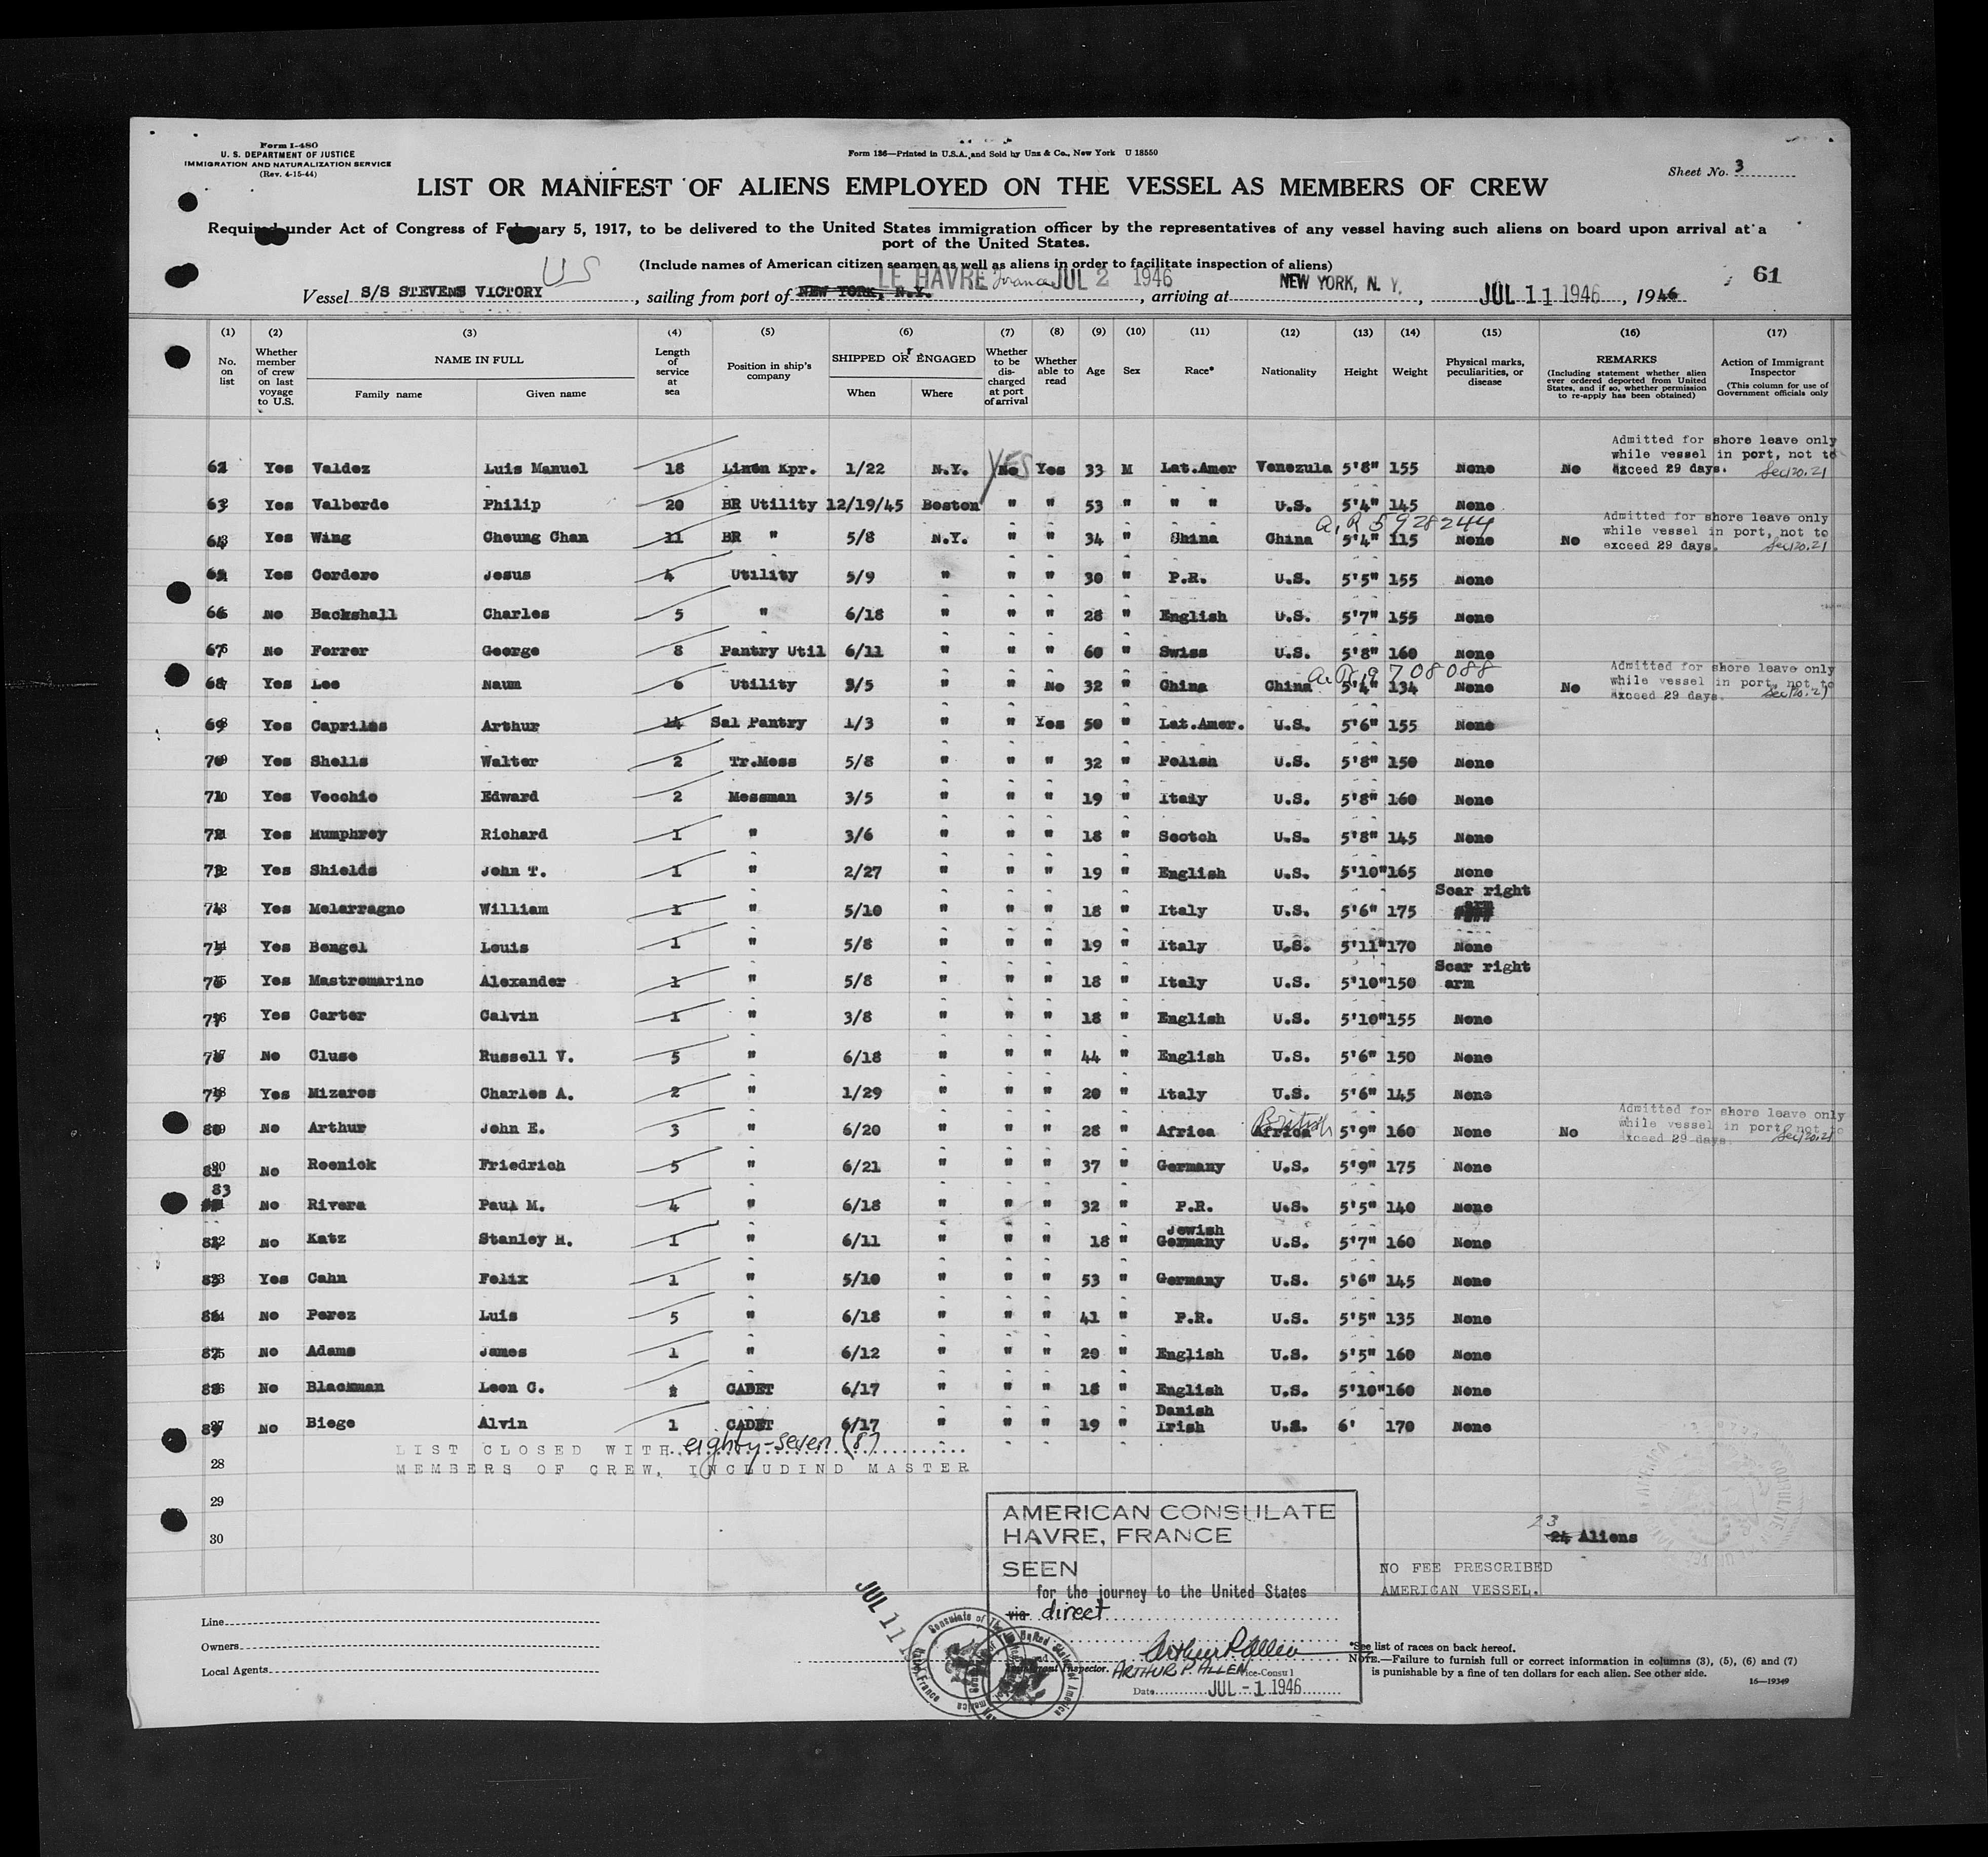 Form I-480
U. S. DEPARTMENT OF JUSTICE
IMMIGRATION AND NATURALIZATION SERVICE
(Rev. 4-15-44)
Form 186—Printed in U.S.A. and Sold by Unz & Co., New York U 18550
Sheet No. 3
LIST OR MANIFEST OF ALIENS EMPLOYED ON THE VESSEL AS MEMBERS OF CREW
Required under Act of Congress of February 5, 1917, to be delivered to the United States immigration officer by the representatives of any vessel having such aliens on board upon arrival at a
port of the United States.
(Include names of American citizen seamen as well as aliens in order to facilitate inspection of aliens)
US
LE HAVRE France JUL 2 1946
61
Vessel S/S STEVENS VICTORY, sailing from port of NEW YORK, N.Y., arriving at NEW YORK, N. Y., JUL 11 1946, 1946
(1) (2) (3) (4) (5) (6) (7) (8) (9) (10) (11) (12) (13) (14) (15) (16) (17)
No. on list
Whether member of crew on last voyage to U.S.
NAME IN FULL
Family name Given name
Length of service at sea
Position in ship's company
SHIPPED OR ENGAGED
When Where
Whether to be discharged at port of arrival
Whether able to read
Age
Sex
Race*
Nationality
Height
Weight
Physical marks, peculiarities, or disease
REMARKS
(Including statement whether alien ever ordered deported from United States, and if so, whether permission to re-apply has been obtained)
Action of Immigrant Inspector
(This column for use of Government officials only
Admitted for shore leave only
while vessel in port, not to
exceed 29 days. Sec 120.21
YES
62 Yes Valdez Luis Manuel 18 Linen Kpr. 1/22 N.Y. No Yes 33 M Lat.Amer Venezula 5'8" 155 None No
63 Yes Valberde Philip 20 BR Utility 12/19/45 Boston " " 53 " " " U.S. 5'4" 145 None
a.R 5928244
Admitted for shore leave only
while vessel in port, not to
exceed 29 days. Sec 120.21
64 Yes Wing Cheung Chan 11 BR " 5/8 N.Y. " " 34 " China China 5'4" 115 None No
Yes Cordero Jesus 4 Utility 5/9 " " " 30 " P.R. U.S. 5'5" 155 None
66 No Backshall Charles 5 " 6/18 " " " 28 " English U.S. 5'7" 155 None
67 No Ferrer George 8 Pantry Util 6/11 " " " 60 " Swiss U.S. 5'8" 160 None
a.R. 9708088
Admitted for shore leave only
while vessel in port, not to
exceed 29 days. Sec 120.21
68 Yes Lee Naum 6 Utility 3/5 " " No 32 " China China 5'4" 134 None No
69 Yes Caprilas Arthur 14 Sal Pantry 1/3 " " Yes 50 " Lat.Amer. U.S. 5'6" 155 None
70 Yes Shells Walter 2 Tr.Mess 5/8 " " " 32 " Polish U.S. 5'8" 150 None
71 Yes Vecchio Edward 2 Messman 3/5 " " " 19 " Italy U.S. 5'8" 160 None
72 Yes Mumphrey Richard 1 " 3/6 " " " 18 " Scotch U.S. 5'8" 145 None
73 Yes Shields John T. 1 " 2/27 " " " 19 " English U.S. 5'10" 165 None
74 Yes Melarragno William 1 " 5/10 " " " 18 " Italy U.S. 5'6" 175 Scar right arm
75 Yes Bengel Louis 1 " 5/8 " " " 19 " Italy U.S. 5'11" 170 None
76 Yes Mastromarino Alexander 1 " 5/8 " " " 18 " Italy U.S. 5'10" 150 Scar right arm
77 Yes Carter Calvin 1 " 3/8 " " " 18 " English U.S. 5'10" 155 None
78 No Cluse Russell V. 5 " 6/18 " " " 44 " English U.S. 5'6" 150 None
79 Yes Mizaros Charles A. 2 " 1/29 " " " 20 " Italy U.S. 5'6" 145 None
Admitted for shore leave only
while vessel in port, not to
exceed 29 days. Sec 120.21
British
80 No Arthur John E. 3 " 6/20 " " " 28 " Africa Africa 5'9" 160 None No
81 No Rosnick Friedrich 5 " 6/21 " " " 37 " Germany U.S. 5'9" 175 None
83 No Rivera Paul M. 4 " 6/18 " " " 32 " P.R. U.S. 5'5" 140 None
No Katz Stanley H. 1 " 6/11 " " " 18 " Jewish Germany U.S. 5'7" 160 None
85 Yes Cahn Felix 1 " 5/10 " " " 53 " Germany U.S. 5'6" 145 None
86 No Perez Luis 5 " 6/18 " " " 41 " P.R. U.S. 5'5" 135 None
87 No Adams James 1 " 6/12 " " " 20 " English U.S. 5'5" 160 None
88 No Blackman Leon C. CADET 6/17 " " " 18 " English U.S. 5'10" 160 None
89 No Biege Alvin 1 CADET 6/17 " " " 19 " Danish Irish U.S. 6' 170 None
LIST CLOSED WITH eighty-seven (87)
28 MEMBERS OF CREW, INCLUDIND MASTER
29
30
23
24 Aliens
AMERICAN CONSULATE
HAVRE, FRANCE
SEEN
for the journey to the United States
via direct
NO FEE PRESCRIBED
AMERICAN VESSEL.
Arthur P. Allen
ARTHUR P. ALLEN
Vice-Consul
Date JUL -1 1946
JUL 11
Immigrant Inspector.
Line
Owners
Local Agents
*See list of races on back hereof.
NOTE.—Failure to furnish full or correct information in columns (3), (5), (6) and (7)
is punishable by a fine of ten dollars for each alien. See other side.
16—19349